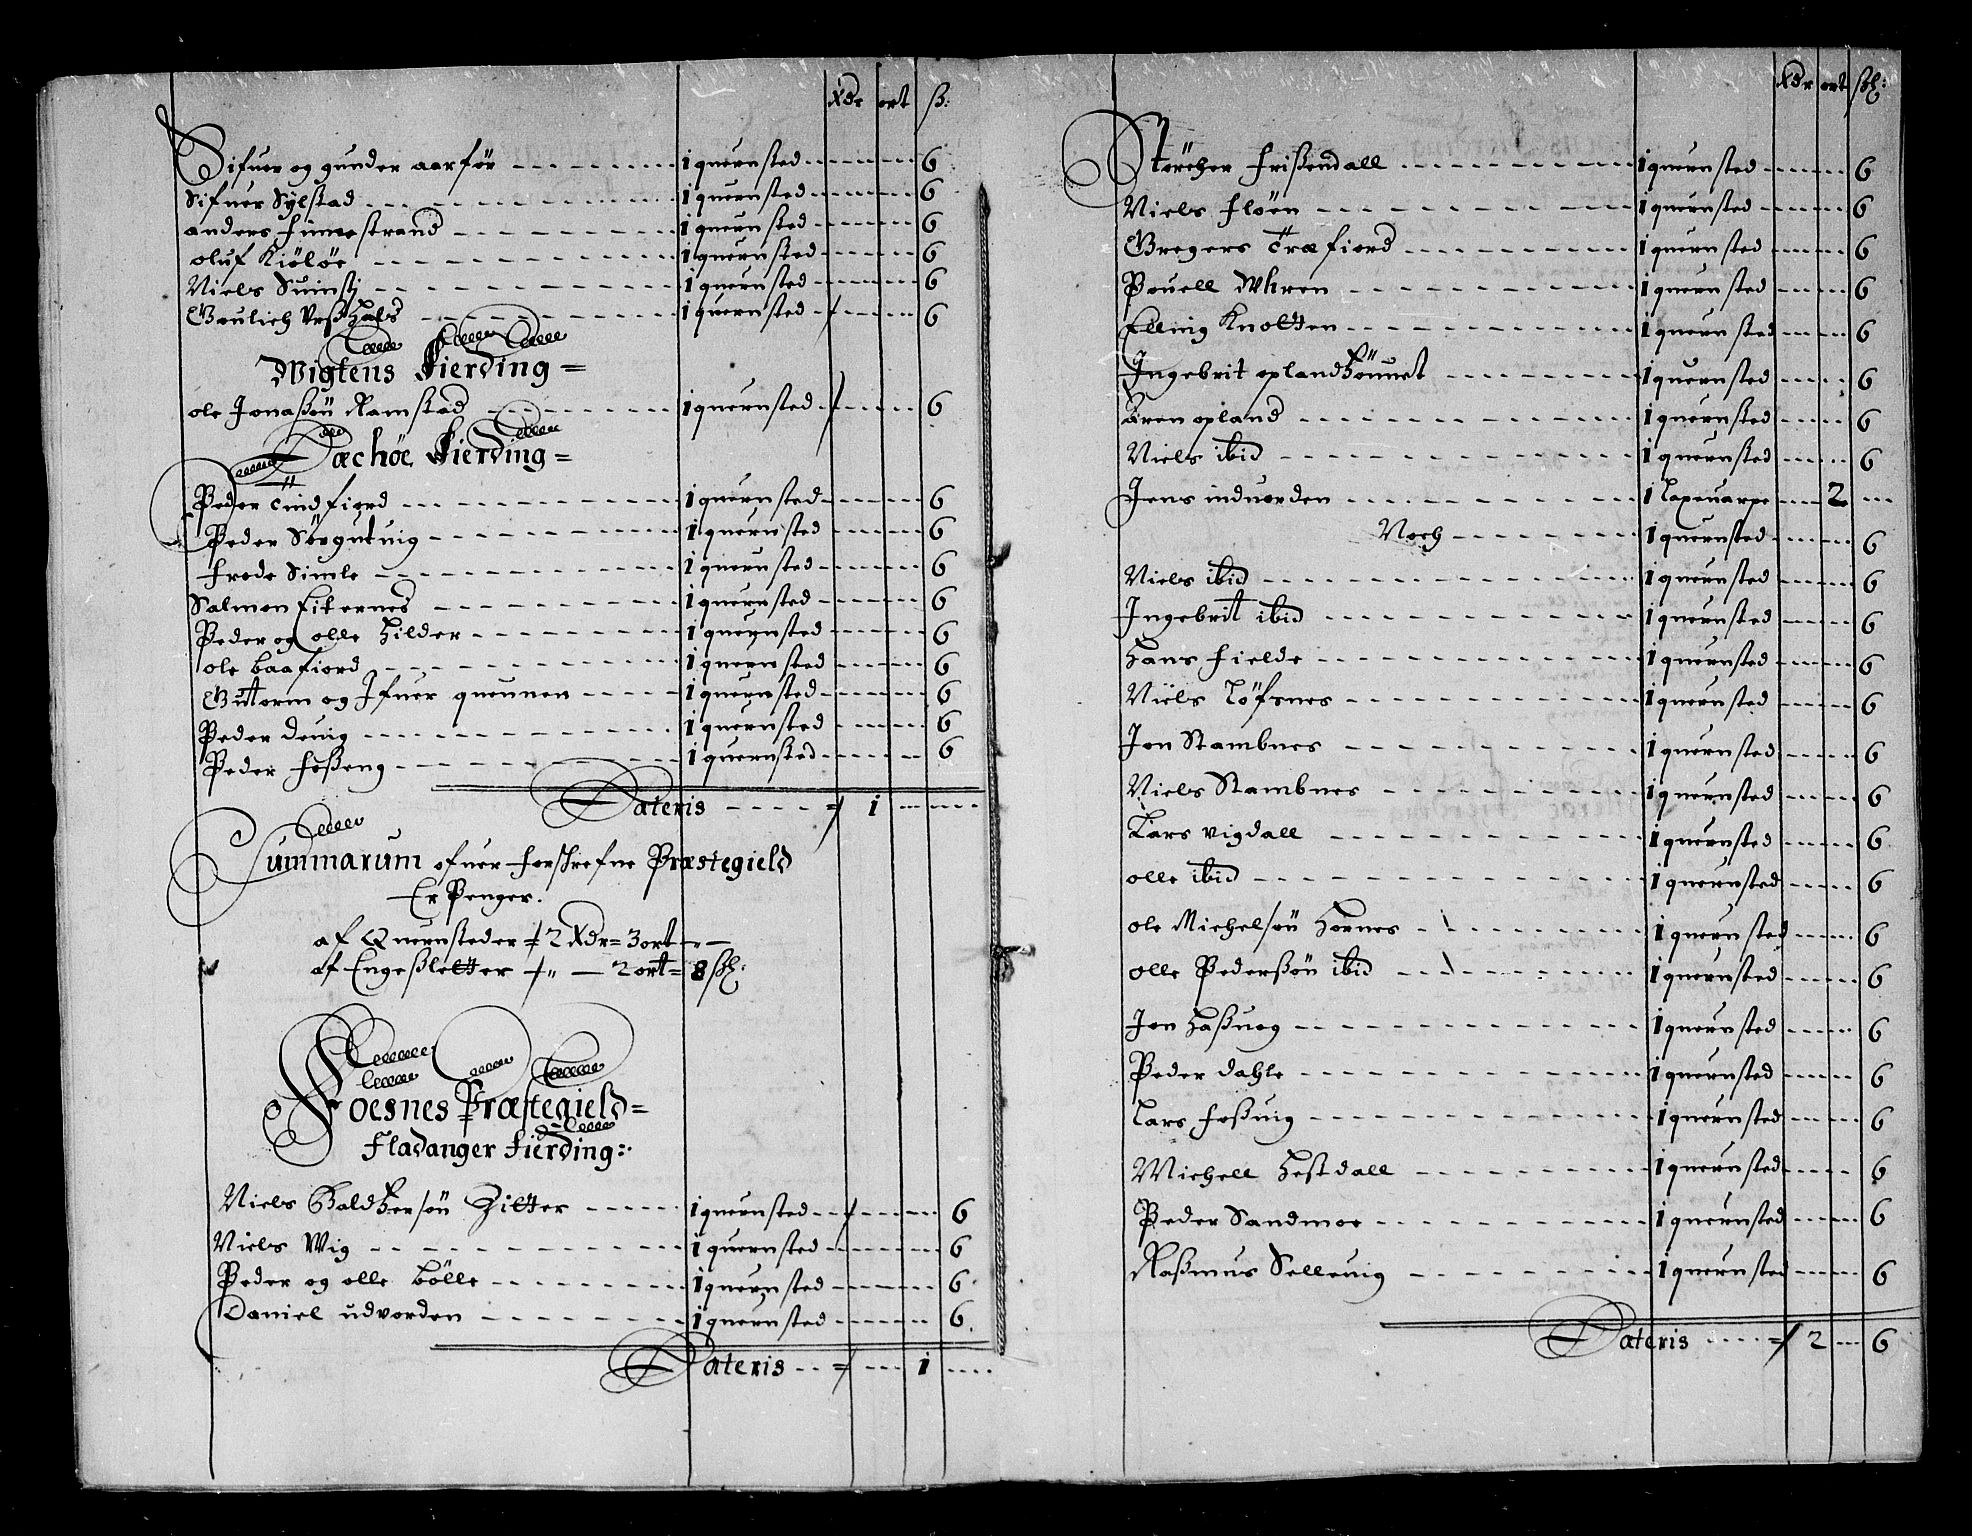 Xdr ort ß:
Sifuer og gunder aarför 1 quernsted 6
Sifuer Sylstad 1 quernsted 6
anders Finnestrand 1 quernsted 6
oluf Kiölöe 1 quernsted 6
Niels 1 quernsted 6
Gaulich 1 quernsted 6
Wigtens Fierding =
ole Jonaßön Ramstad 1 quernsted 6
Næröe Fierding =
Peder indfiord 1 quernsted 6
Peder Sörgutuig 1 quernsted 6
Frede Simle 1 quernsted 6
Salmon Eiternes 1 quernsted 6
Peder og olle Hilder 1 quernsted 6
ole baafiord 1 quernsted 6
Gutorm og Ifuer queunen 1 quernsted 6
Peder Deuig 1 quernsted 6
Peder Foßeng 1 quernsted 6
Lateris 1
Summarum ofuer forschrefne Præstegield
Er Penger.
af Quernsteder 2 Xdr = 3 ort
af Engeßletter 2 ort = 8 sk:
Foesnes Præstegield =
Fladanger Fierding:
Niels Baldtzersön Zitter 1 quernsted 6
Niels Wig 1 quernsted 6
Peder og olle bölle 1 quernsted 6
Daniel udvorden 1 quernsted 6
Lateris 1
Xdr ort sk:
Stercher Frißendall 1 quernsted 6
Niels Flöen 1 quernsted 6
Gregers Træfiord 1 quernsted 6
Pouell Whren 1 quernsted 6
Elling Knotten 1 quernsted 6
Ingebrit opland 1 quernsted 6
Aren opland 1 quernsted 6
Niels ibid 1 quernsted 6
Jens induorden 1 Laxeuarpe 2
Noch 1 quernsted 6
Niels ibid 1 quernsted 6
Ingebrit ibid 1 quernsted 6
Hans Fielde 1 quernsted 6
Niels Löfsnes 1 quernsted 6
Jon Stambnes 1 quernsted 6
Niels Stambnes 1 quernsted 6
Lars Vigdall 1 quernsted 6
olle ibid 1 quernsted 6
ole Michelsön Hornes 1 quernsted 6
olle Pederßön ibid 1 quernsted 6
Jon Haßuog 1 quernsted 6
Peder Dahle 1 quernsted 6
Lars Foßuig 1 quernsted 6
Michell Hestdall 1 quernsted 6
Peder Sandmoe 1 quernsted 6
Raßmus Selleuig 1 quernsted 6
Lateris 2 6